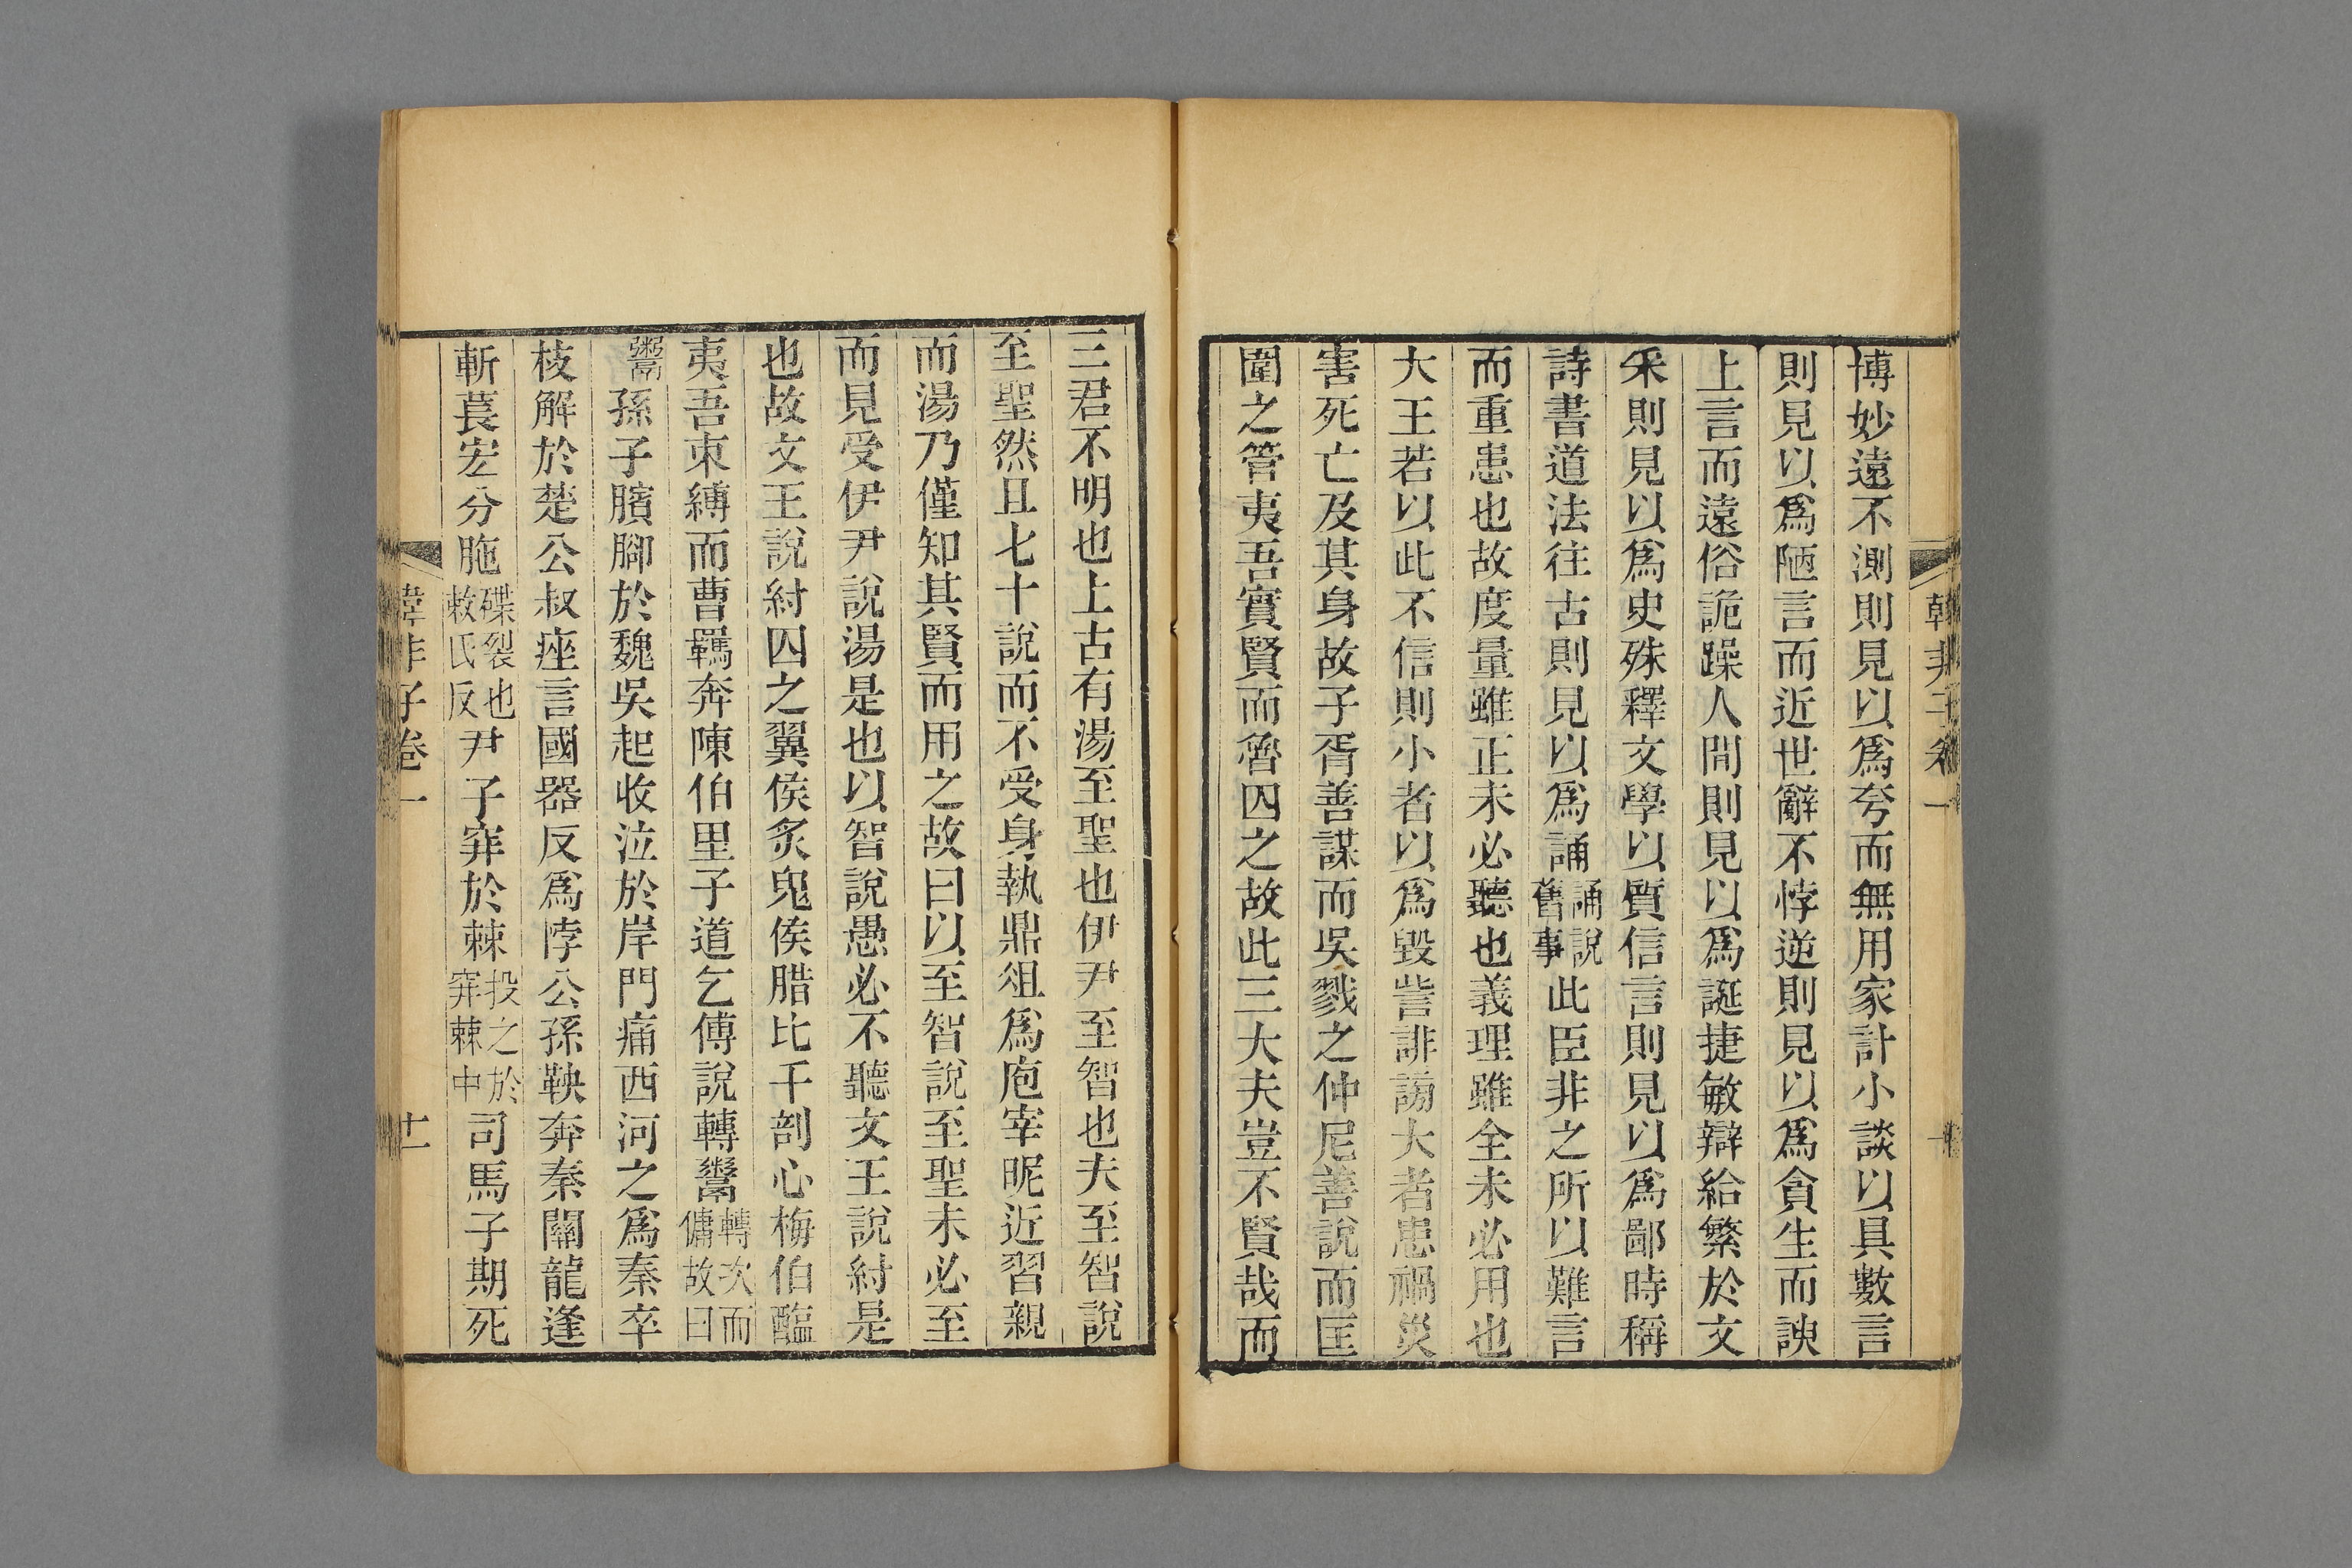 韓非子卷一
十
博妙遠不測則見以爲夸而無用家計小談以具數言
則見以爲陋言而近世辭不悖逆則見以爲貪生而諛
上言而遠俗詭躁人間則見以爲誕捷敏辯給繁於文
采則見以爲史殊釋文學以質信言則見以爲鄙時稱
詩書道法往古則見以爲誦誦說舊事此臣非之所以難言
而重患也故度量雖正未必聽也義理雖全未必用也
大王若以此不信則小者以爲毀訾誹謗大者患禍災
害死亡及其身故子胥善謀而吳戮之仲尼善說而匡
圍之管夷吾實賢而魯囚之故此三大夫豈不賢哉而
三君不明也上古有湯至聖也伊尹至智也夫至智說
至聖然且七十說而不受身執鼎俎爲庖宰昵近習親
而湯乃僅知其賢而用之故曰以至智說至聖未必至
而見受伊尹說湯是也以智說愚必不聽文王說紂是
也故文王說紂囚之翼侯炙鬼侯腊比干剖心梅伯醢
夷吾束縛而曹羈奔陳伯里子道乞傅說轉鬻轉次而傭故曰
鬻孫子臏腳於魏吳起收泣於岸門痛西河之爲秦卒
枝解於楚公叔痤言國器反爲悖公孫鞅奔秦關龍逢
斬萇宏分胣磔裂也敕氏反尹子穽於棘投之於穽棘中司馬子期死
韓非子卷一
十一